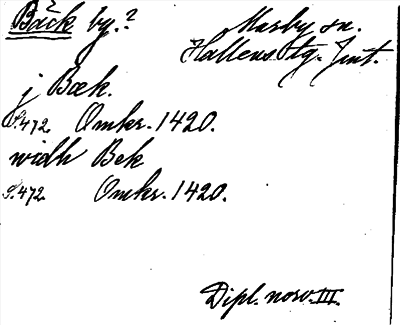 Bäck by.?
Marby sn.
Hallens tg. Jmt.
j Bæk.
S. 472. Omkr. 1420.
widh Bek
S. 472. Omkr. 1420.
Dipl. norv. III.